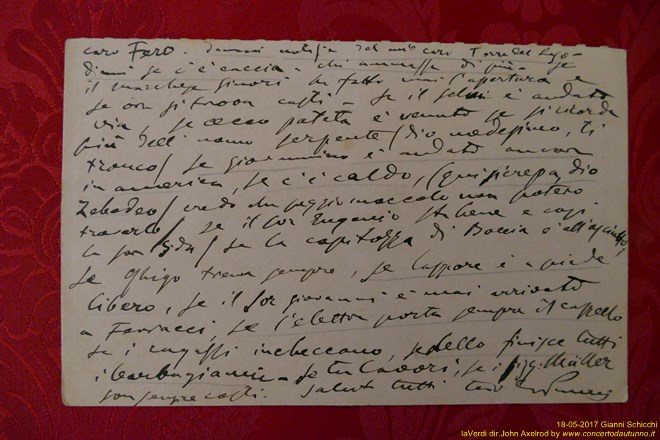 caro Fero. Dammi notizie del mio caro Torre del Lago
dimmi se c'è caccia - chi ammazza di più - se
il marchese Ginori ha fatto l'apertura e
se ora si trova costì - se il è andato
via, se cecco patata è venuto se si ricorda
più dell' uomo serpente (dio modesimo, ti
tronco) se giovannino è andato ancora
in america, se c'è caldo, (qui si crepa, dio
Zebedeo) credo che peggio moccolo non potevo
trovarlo) se il sor Eugenio sta bene e così
la sora / se la capitozza di Boccia è all'asciutto,
se Ghigo trema sempre, se Cappore è a piede
libero, se il Sor giovanni è mai arrivato
a Farnacci, se l'elettor porta sempre il cappello
se i ragazzi imbeccano, se dello finisce tutti
i barbagianni - se tu lavori, se i sigg. Müller
son sempre costì. Saluta tutti tuo Puccini
18-05-2017 Gianni Schicchi
laVerdi dir.John Axelrod by www.concertodautunno.it